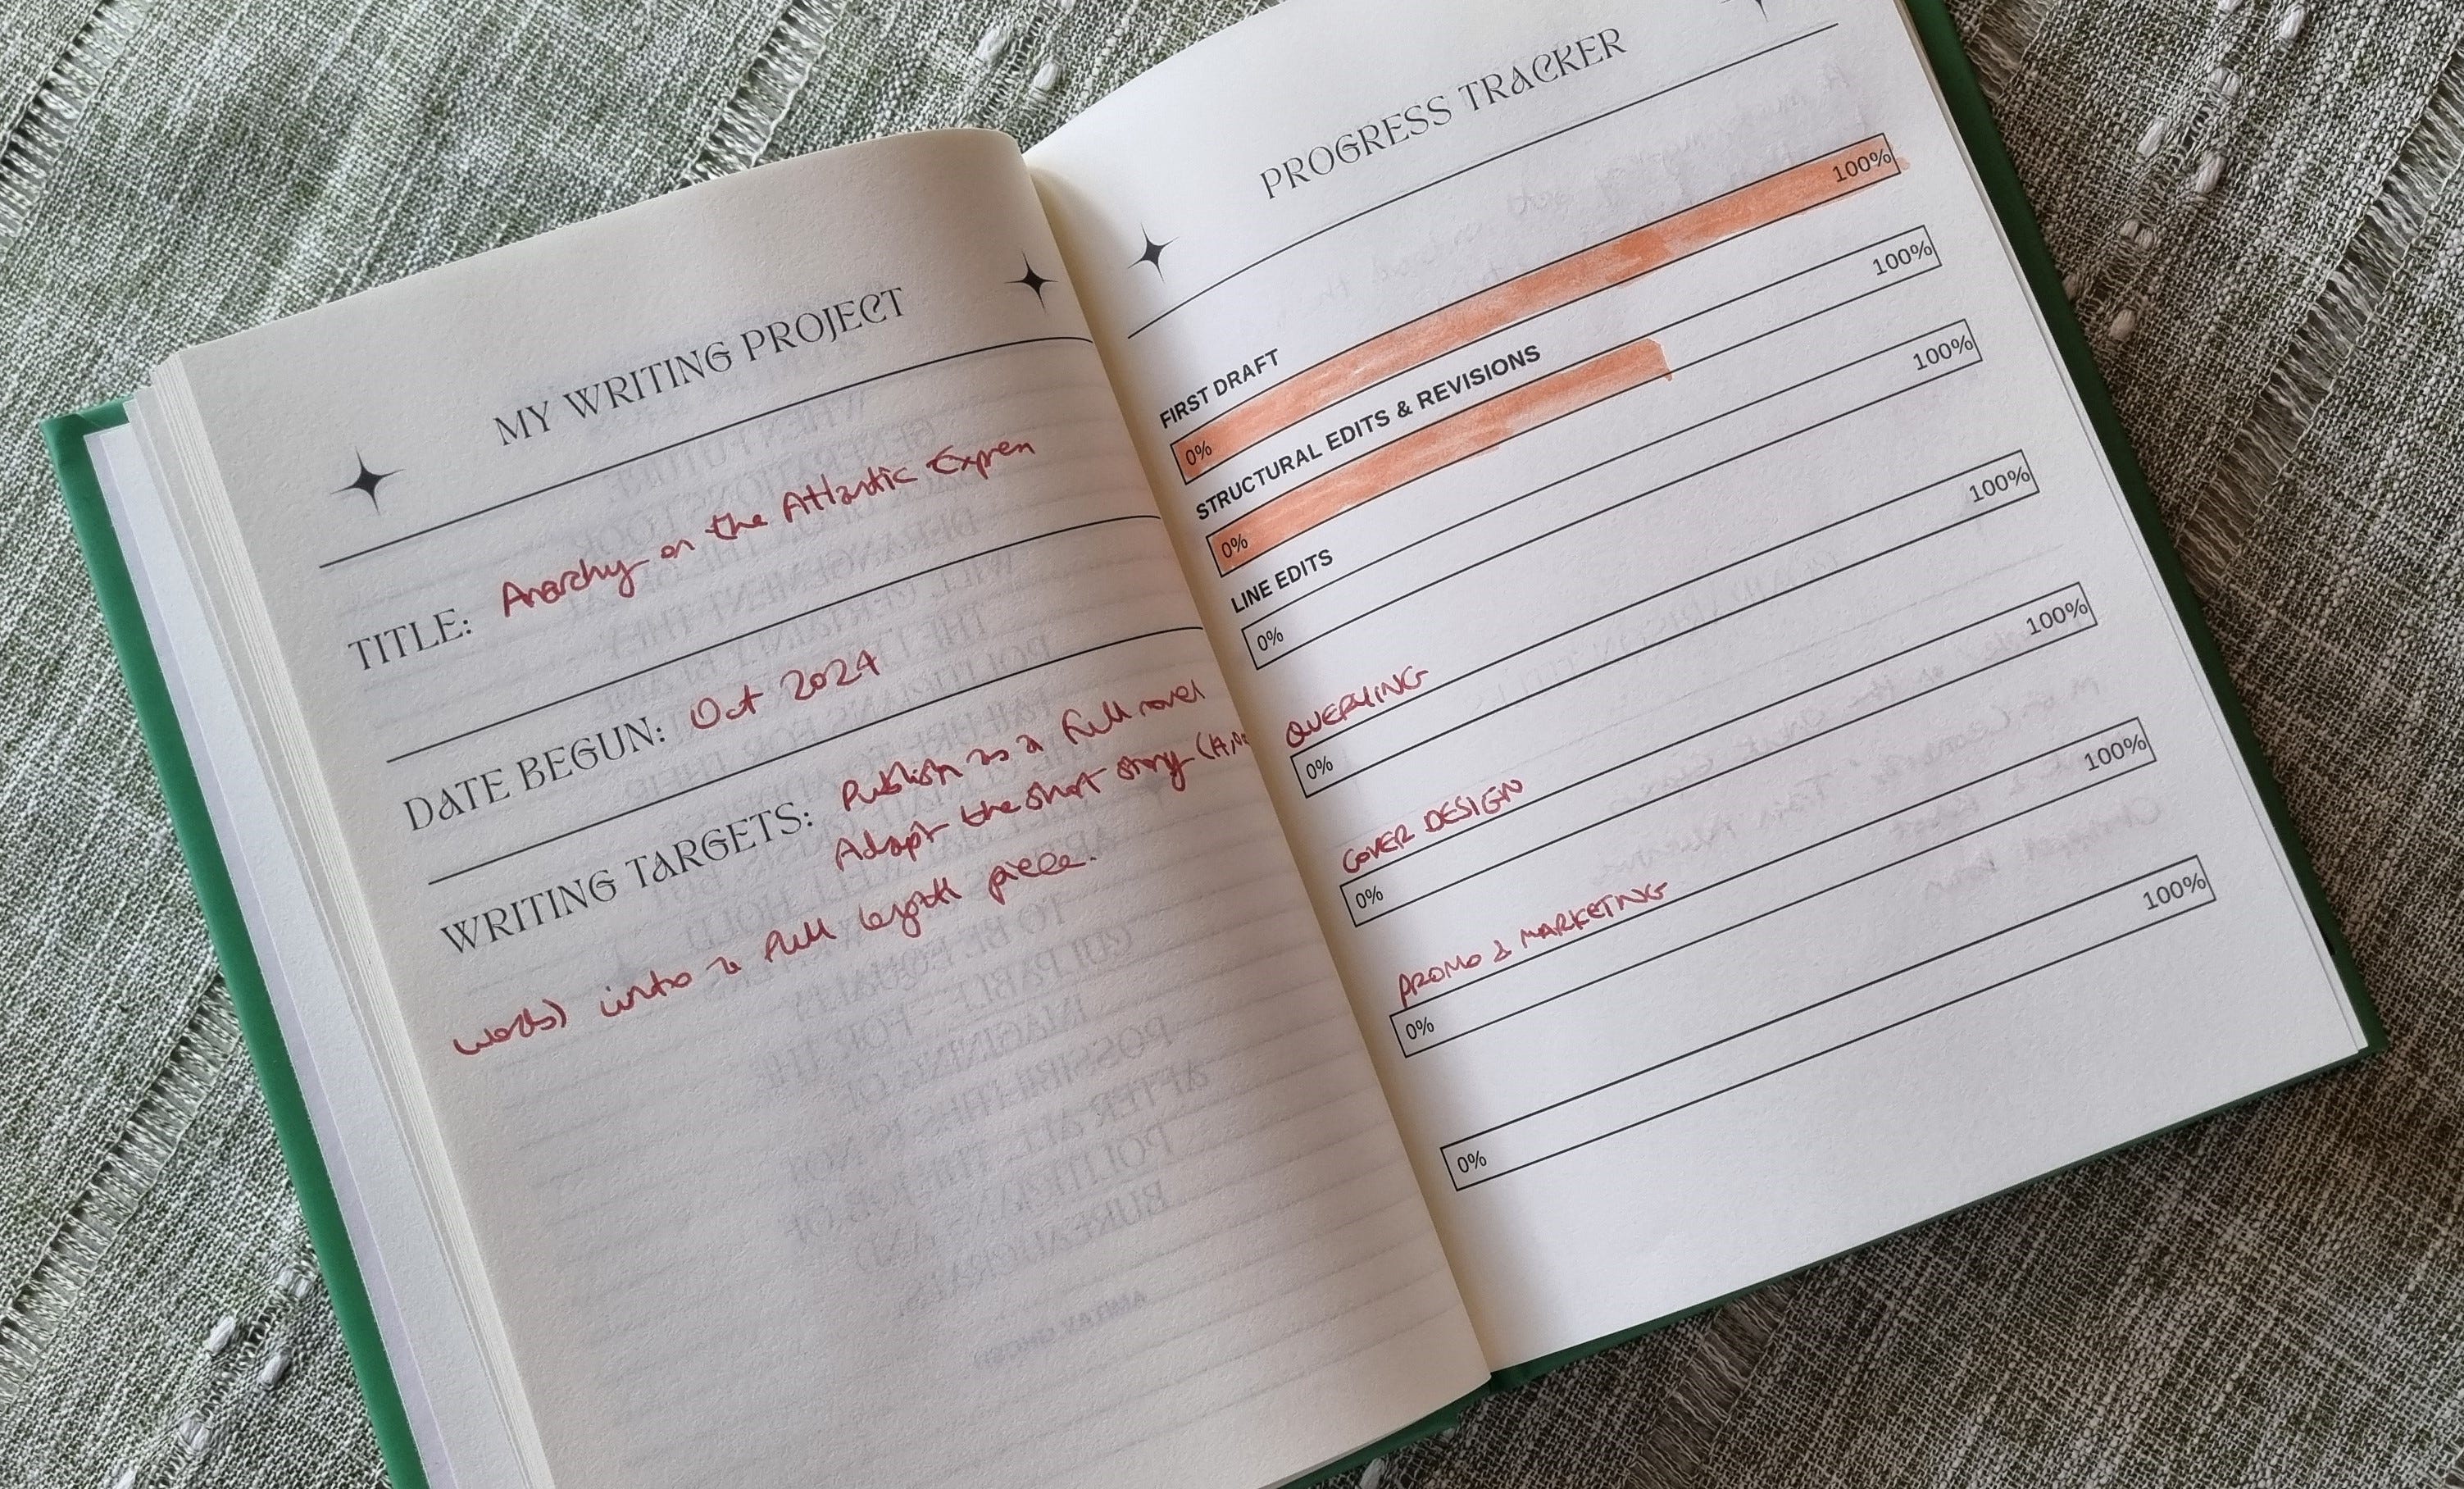 MY WRITING PROJECT
TITLE: Anarchy on the Atlantic
DATE BEGUN: Oct 2024
WRITING TARGETS: Publish as a full novel
Adapt the short story
words) into a full length piece.
PROGRESS TRACKER
FIRST DRAFT
0% 100%
STRUCTURAL EDITS & REVISIONS
0% 100%
LINE EDITS
0% 100%
QUERYING
0% 100%
COVER DESIGN
0% 100%
PROMO & MARKETING
0% 100%
0% 100%